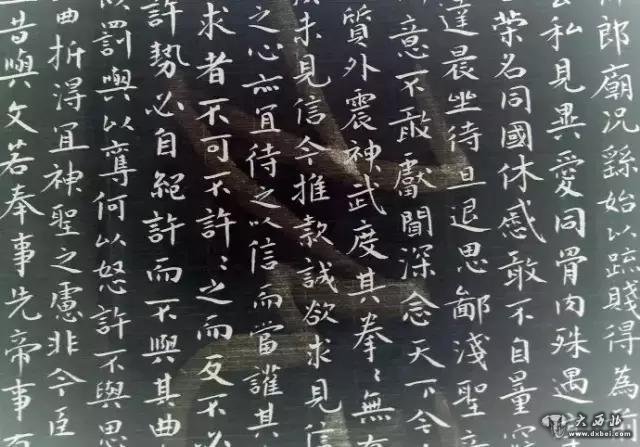 郎廟況繇始以疏賤得為
公私見異愛同骨肉殊遇
榮名同國休慼敢不自量
達晨坐待旦退思鄙淺聖
意不敢獻聞深念天下今
質外震神武度其拳〻無有
未見信今推款誠欲求見信
之心亦宜待之以信而當護其
求者不可不許〻之而反不必
許勢必自絕許而不與其曲
以罰與以奪何以怒許不與思
曲折得宜神聖之慮非今臣
昔與文若奉事先帝事有
大西北
www.dxbei.com